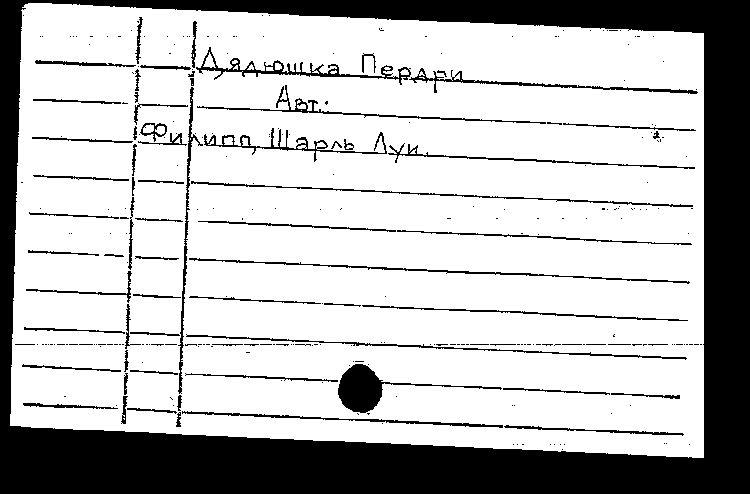 Дядюшка Пердри
Авт.:
Филипп, Шарль Луи.